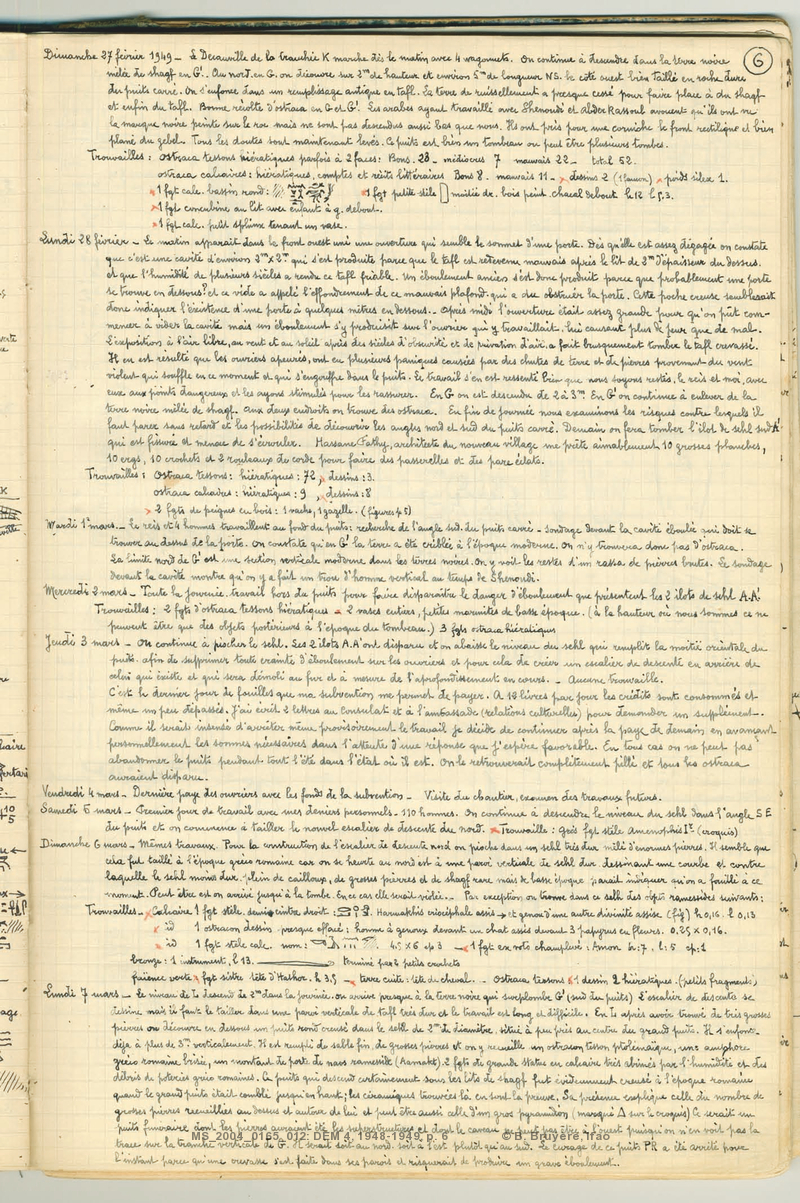 6
Dimanche 27 février 1949 – Le Decauville de la tranchée K marche dès le matin avec 4 wagonnets. On continue à descendre dans la terre noire
mêlée de shagf en G'. Au nord en G. on découvre sur 2m de hauteur et environ 5m de longueur NS. le côté ouest bien taillé en roche dure
du puits carré. On s'enfonce dans un remplissage antique en tafl. La terre de ruissellement a presque cessé pour faire place à du shagf
et enfin du tafl. Bonne récolte d'ostraca en G et G'. Les arabes ayant travaillé avec Shenoudi et Abder Rassoul avouent qu'ils ont vu
la marque noire peinte sur le roc mais ne sont pas descendus aussi bas que nous. Ils ont pris pour une corniche le front rectiligne et bien
plané du gebel. Tous les doutes sont maintenant levés. Ce puits est bien un tombeau ou peut être plusieurs tombes.
Trouvailles : Ostraca tessons hiératiques parfois à 2 faces : Bons. 23 – médiocres 7 mauvais 22 – total 52.
ostraca calcaires : hiératiques, comptes et récits littéraires Bons 8. mauvais 11 – dessins 2 (1 faucon) poids silex 1.
1 fgt calc. bassin rond : 1 fgt petite stèle moitié dr. bois peint. chacal debout h. 12 l. 5.3.
1 fgt concubine au lit avec enfant à g. debout.
1 fgt calc. petit sphinx tenant un vase.
Lundi 28 février – Le matin apparait dans le front ouest uni une ouverture qui semble le sommet d'une porte. Dès qu'elle est assez dégagée on constate
que c'est une cavité d'environ 3m x 2m qui s'est produite parce que le tafl est devenu mauvais après le lit de 2m d'épaisseur du dessus.
et que l'humidité de plusieurs siècles a rendu ce tafl friable. Un éboulement ancien s'est donc produit parce que probablement une porte
se trouve en dessous ? et ce vide a appelé l'effondrement de ce mauvais plafond qui a du obstruer la porte. Cette poche creuse semblerait
donc indiquer l'existence d'une porte à quelques mètres en dessous. Après midi l'ouverture était assez grande pour qu'on pût com-
mencer à vider la cavité mais un éboulement s'y produisit sur l'ouvrier qui y travaillait, lui causant plus de peur que de mal.
L'exposition à l'air libre, au vent et au soleil après des siècles d'obscurité et de privation d'air a fait brusquement tomber le tafl crevassé.
Il en est résulté que les ouvriers apeurés, ont eu plusieurs paniques causées par des chutes de terre et de pierres provenant du vent
violent qui souffle en ce moment et qui s'engouffre dans le puits. Le travail s'en est ressenti bien que nous soyons restés, le reis et moi, avec
eux aux points dangereux et les ayons stimulés pour les rassurer. En G on est descendu de 2 à 3m. En G' on continue à enlever de la
terre noire mêlée de shagf. aux deux endroits on trouve des ostraca. En fin de journée nous examinons les risques contre lesquels il
faut parer sans retard et les possibilités de découvrir les angles nord et sud du puits carré. Demain on fera tomber l'îlot de sehl sud A'
qui est fissuré et menace de s'écrouler. Hassane Fathy, architecte du nouveau village me prête aimablement 10 grosses planches,
10 ergs, 10 crochets et 2 rouleaux de corde pour faire des passerelles et des pare éclats.
Trouvailles : Ostraca tessons : hiératiques : 72, dessins : 3.
ostraca calcaires : hiératiques : 9, dessins : 8
2 fgts de peignes en bois : 1 vache, 1 gazelle. (figures p. 5)
Mardi 1er mars. – Le reis et 4 hommes travaillent au fond du puits : recherche de l'angle sud. du puits carré – sondage devant la cavité éboulée qui doit se
trouver au dessus de la porte. On constate qu'en G' la terre a été criblée à l'époque moderne. On n'y trouvera donc pas d'ostraca.
La limite nord de G' est une section verticale moderne dans les terres noires. On y voit les restes d'un rassa de pierres brutes. Le sondage
devant la cavité montre qu'on y a fait un trou d'homme vertical au temps de Shenoudi.
Mercredi 2 mars – Toute la journée, travail hors du puits pour faire disparaître le danger d'éboulement que présentent les 2 îlots de sehl A.A'
Trouvailles : 2 fgts d'ostraca tessons hiératiques – 2 vases entiers, petites marmites de basse époque. (à la hauteur où nous sommes ce ne
peuvent être que des objets postérieurs à l'époque du tombeau.) 3 fgts ostraca hiératiques
Jeudi 3 mars – On continue à piocher le sehl. Les 2 îlots A.A' ont disparu et on abaisse le niveau du sehl qui remplit la moitié orientale du
puits. afin de supprimer toute crainte d'éboulement sur les ouvriers et pour cela de créer un escalier de descente en arrière de
celui qui existe et qui sera démoli au fur et à mesure de l'approfondissement en cours. – Aucune trouvaille.
C'est le dernier jour de fouilles que ma subvention me permet de payer. A 12 livres par jour les crédits sont consommés et
même un peu dépassés. J'ai écrit 2 lettres au Consulat et à l'ambassade (relations culturelles) pour demander un supplément –.
Comme il serait insensé d'arrêter même provisoirement le travail je décide de continuer après la paye de demain en avançant
personnellement les sommes nécessaires dans l'attente d'une réponse que j'espère favorable. En tous cas on ne peut pas
abandonner le puits pendant tout l'été dans l'état où il est. On le retrouverait complètement pillé et tous les ostraca
auraient disparu.
Vendredi 4 mars – Dernière paye des ouvriers avec les fonds de la subvention – Visite du chantier, examen des travaux futurs.
Samedi 5 mars – Premier jour de travail avec mes deniers personnels. 110 hommes. On continue à descendre le niveau du sehl dans l'angle S E
du puits et on commence à tailler le nouvel escalier de descente du nord. Trouvaille : Grès fgt stèle Amenophis Ier (croquis)
Dimanche 6 mars – Mêmes travaux. Pour la construction de l'escalier de descente nord on pioche dans un sehl très dur mêlé d'énormes pierres. Il semble que
cela fut taillé à l'époque gréco romaine car on se heurte au nord est à une paroi verticale de sehl dur dessinant une courbe et contre
laquelle le sehl moins dur plein de cailloux, de grosses pierres et de shagf rare mais de basse époque paraît indiquer qu'on a fouillé à ce
moment. Peut être est on arrivé jusqu'à la tombe. En ce cas elle serait violée. – Par exception on trouve dans ce sehl des objets ramessides suivants :
Trouvailles – Calcaire 1 fgt stèle, cintre droit : Harmakhis criocéphale assis et genou d'une autre divinité assise (fig) h 0,16. l. 0,13
id 1 ostracon dessin presque effacé : homme à genoux devant un chat assis devant 3 papyrus en fleurs. 0,25 x 0,16.
id 1 fgt stèle calc. nom : 4.5 x 6 ep 3 – 1 fgt ex voto champlevé : Amon h : 7, l : 5 ep : 1
bronze : 1 instrument, l. 13. terminé par 2 petits crochets
faience verte fgt sistre tête d'Hathor. h 3,5 – terre cuite : tête de cheval – Ostraca tessons 1 dessin 2 hiératiques. (petits fragments)
Lundi 7 mars – Le niveau de descend de 2m dans la journée. on arrive presque à la terre noire qui surplombe G' (sud du puits) L'escalier de descente se
dessine mais il faut le tailler dans une paroi verticale de tafl très dur et le travail est long et difficile. En après avoir trouvé de très grosses
pierres on découvre en dessous un puits rond creusé dans le sehl de 2m de diamètre, situé à peu près au centre du grand puits. Il s'enfonce
déjà à plus de 3m verticalement. Il est rempli de sable fin, de grosses pierres et on y recueille un ostracon tesson ptolémaïque, une amphore
gréco romaine brisée, un montant de porte de naos ramesside (Aamakt). 2 fgts de grande statue en calcaire très abimés par l'humidité et des
débris de poteries gréco romaines. Ce puits qui descend certainement sous les lits de shagf fut évidemment creusé à l'époque romaine
quand le grand puits était comblé jusqu'en haut ; les céramiques trouvées là en sont la preuve. Sa présence explique celle du nombre de
grosses pierres recueillies au dessus et autour de lui et peut être aussi celle d'un gros pyramidion (marqué Δ sur le croquis) Ce serait un
puits funéraire dont les pierres auraient été les superstructures et dont le caveau ne peut pas être à l'ouest puisqu'on n'en voit pas la
trace sur la tranche verticale de G. Il serait soit au nord soit à l'est plutôt qu'au sud. Le curage de ce puits PR a été arrêté pour
l'instant parce qu'une crevasse s'est faite dans ses parois et risquerait de produire un grave éboulement.
MS_2004_0165_012: DEM 4, 1948-1949, p. 6 © B. Bruyère. Ifao